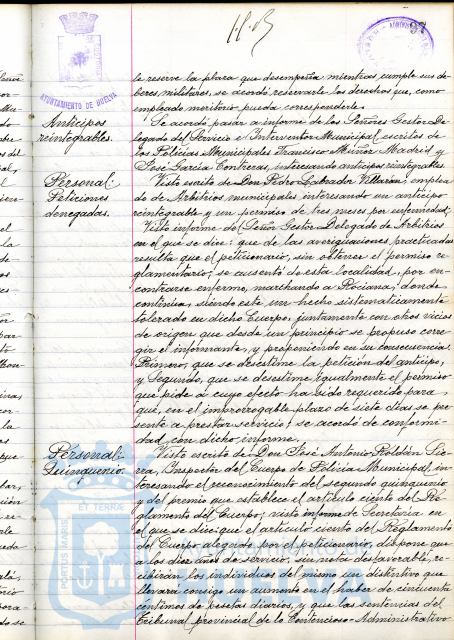 97
AYUNTAMIENTO DE HUELVA
le reserve la plaza que desempeña, mientras cumple sus de-
beres militares, se acordó reservarle los derechos que, como
empleado meritorio, pueda corresponderle.
Anticipos
reintegrables.
Se acordó pasar a informe de los Señores Gestor De-
legado del Servicio e Interventor Municipal escritos de
los Policías Municipales Francisco Muñoz Madrid y
José García Contreras, interesando anticipos reintegrables.
Personal:
Peticiones
denegadas.
Visto escrito de Don Pedro Labrador Villarán, emplea-
do de Arbitrios municipales interesando un anticipo
reintegrable y un permiso de tres meses por enfermedad;
Visto informe del Señor Gestor Delegado de Arbitrios
en el que se dice: que de las averiguaciones practicadas
resulta que el peticionario, sin obtener el permiso re-
glamentario, se ausentó de esta localidad, por en-
contrarse enfermo, marchando a Rociana, donde
continúa, siendo este un hecho sistemáticamente
tolerado en dicho Cuerpo, juntamente con otros vicios
de origen que desde un principio se propuso corre-
gir el informante, y proponiendo en su consecuencia:
Primero, que se desestime la petición del anticipo,
y Segundo, que se desestime igualmente el permiso
que pide a cuyo efecto ha sido requerido para
que, en el improrrogable plazo de siete días se pre-
sente a prestar servicio; se acordó de conformi-
dad con dicho informe.
Personal:
Quinquenio.
Visto escrito de Don José Antonio Roldán Sie-
rra, Inspector del Cuerpo de Policía Municipal, in-
teresando el reconocimiento del segundo quinquenio
y del premio que establece el artículo ciento del Re-
glamento del Cuerpo; visto informe de Secretaría en
el que se dice: que el artículo ciento del Reglamento
del Cuerpo alegado por el peticionario, dispone que
a los diez años de servicio, sin nota desfavorable, re-
cibirán los individuos del mismo un distintivo que
llevará consigo un aumento en el haber de cincuenta
céntimos de pesetas diarios, y que las sentencias del
Tribunal provincial de lo Contencioso-Administrativo
PORTUS MARIS ET TERRAE